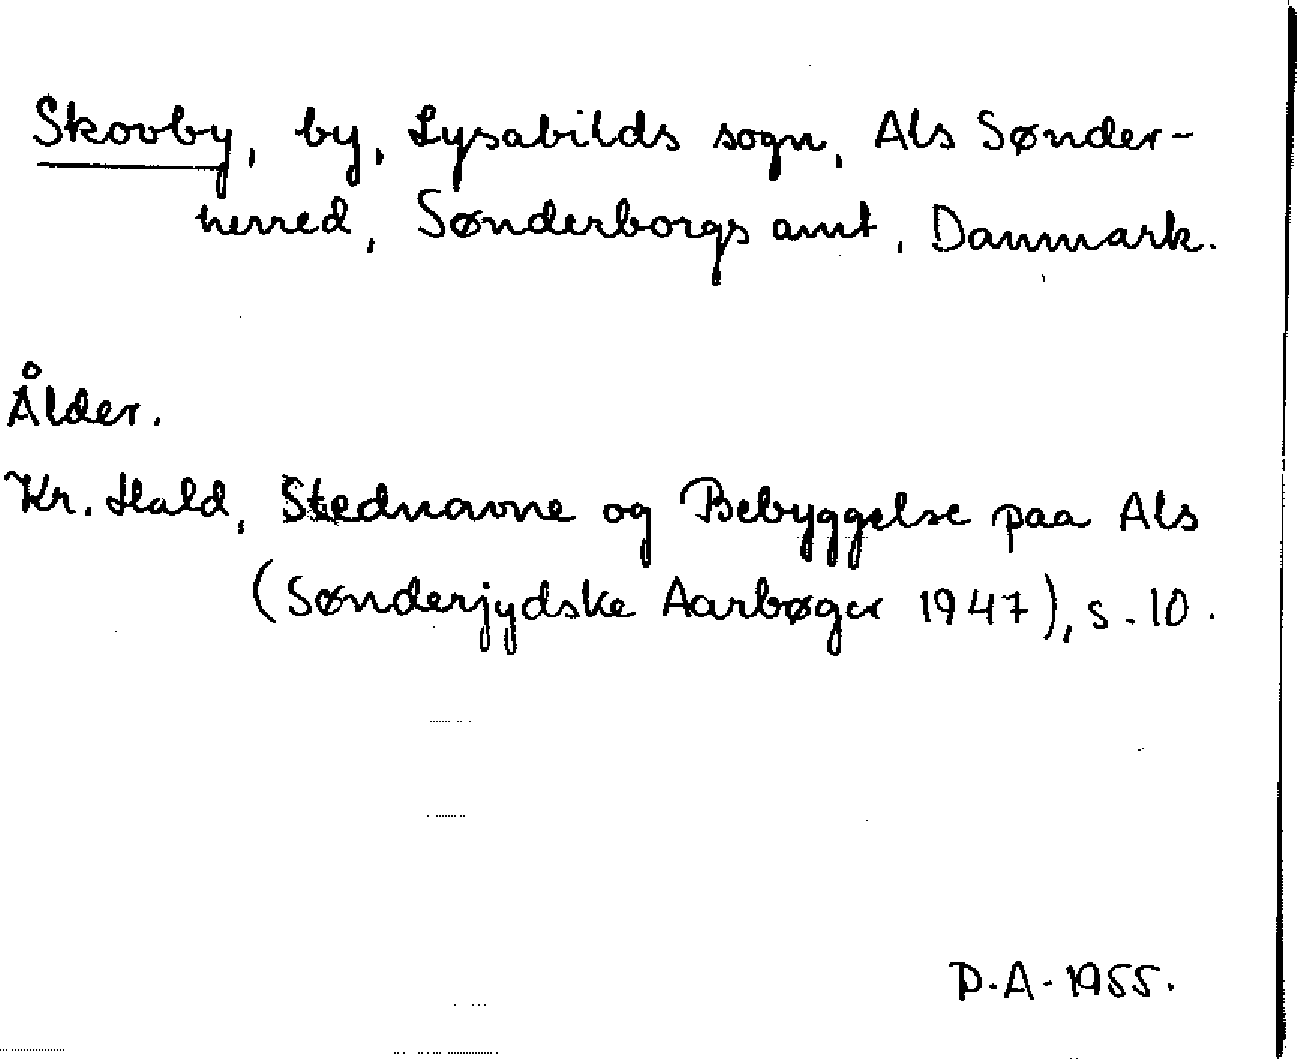 Skovby, by, Lysabilds sogn, Als Sønder-
herred, Sønderborgs amt, Danmark.
Ålder.
Kr. Hald, Stednavne og Bebyggelse paa Als
(Sønderjydske Aarbøger 1947), s. 10.
D.A. 1955.